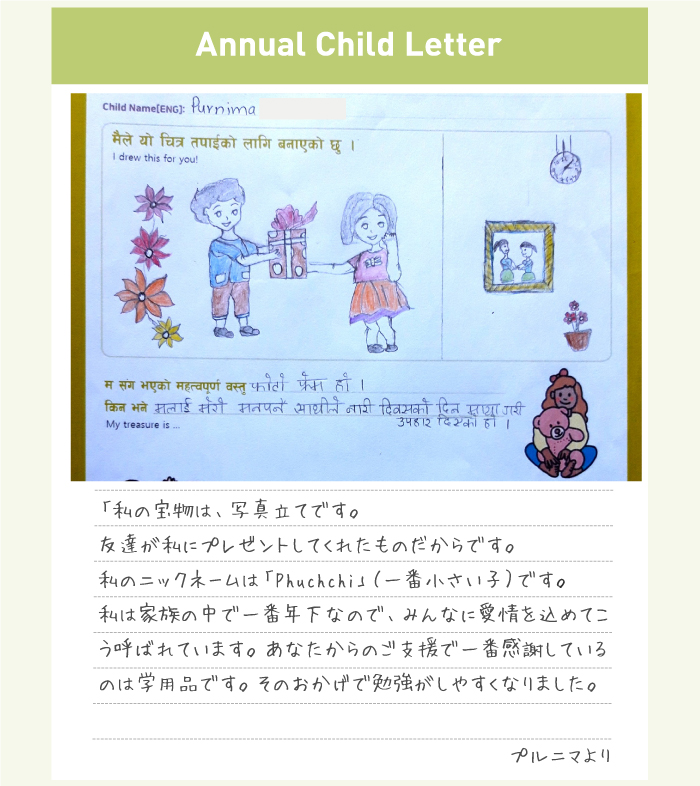 Annual Child Letter
Child Name[ENG]: Purnima
मैले यो चित्र तपाईको लागि बनाएको छु ।
I drew this for you!
म संग भएको महत्वपूर्ण वस्तु फोटो फ्रेम हो ।
किन भने मलाई मेरो मनपर्ने साथीले नारी दिवसको दिन माया गरी
उपहार दिएको हो ।
My treasure is ...
「私の宝物は、写真立てです。
友達が私にプレゼントしてくれたものだからです。
私のニックネームは「Phuchchi」(一番小さい子)です。
私は家族の中で一番年下なので、みんなに愛情を込めてこ
う呼ばれています。あなたからのご支援で一番感謝している
のは学用品です。そのおかげで勉強がしやすくなりました。
プルニマより